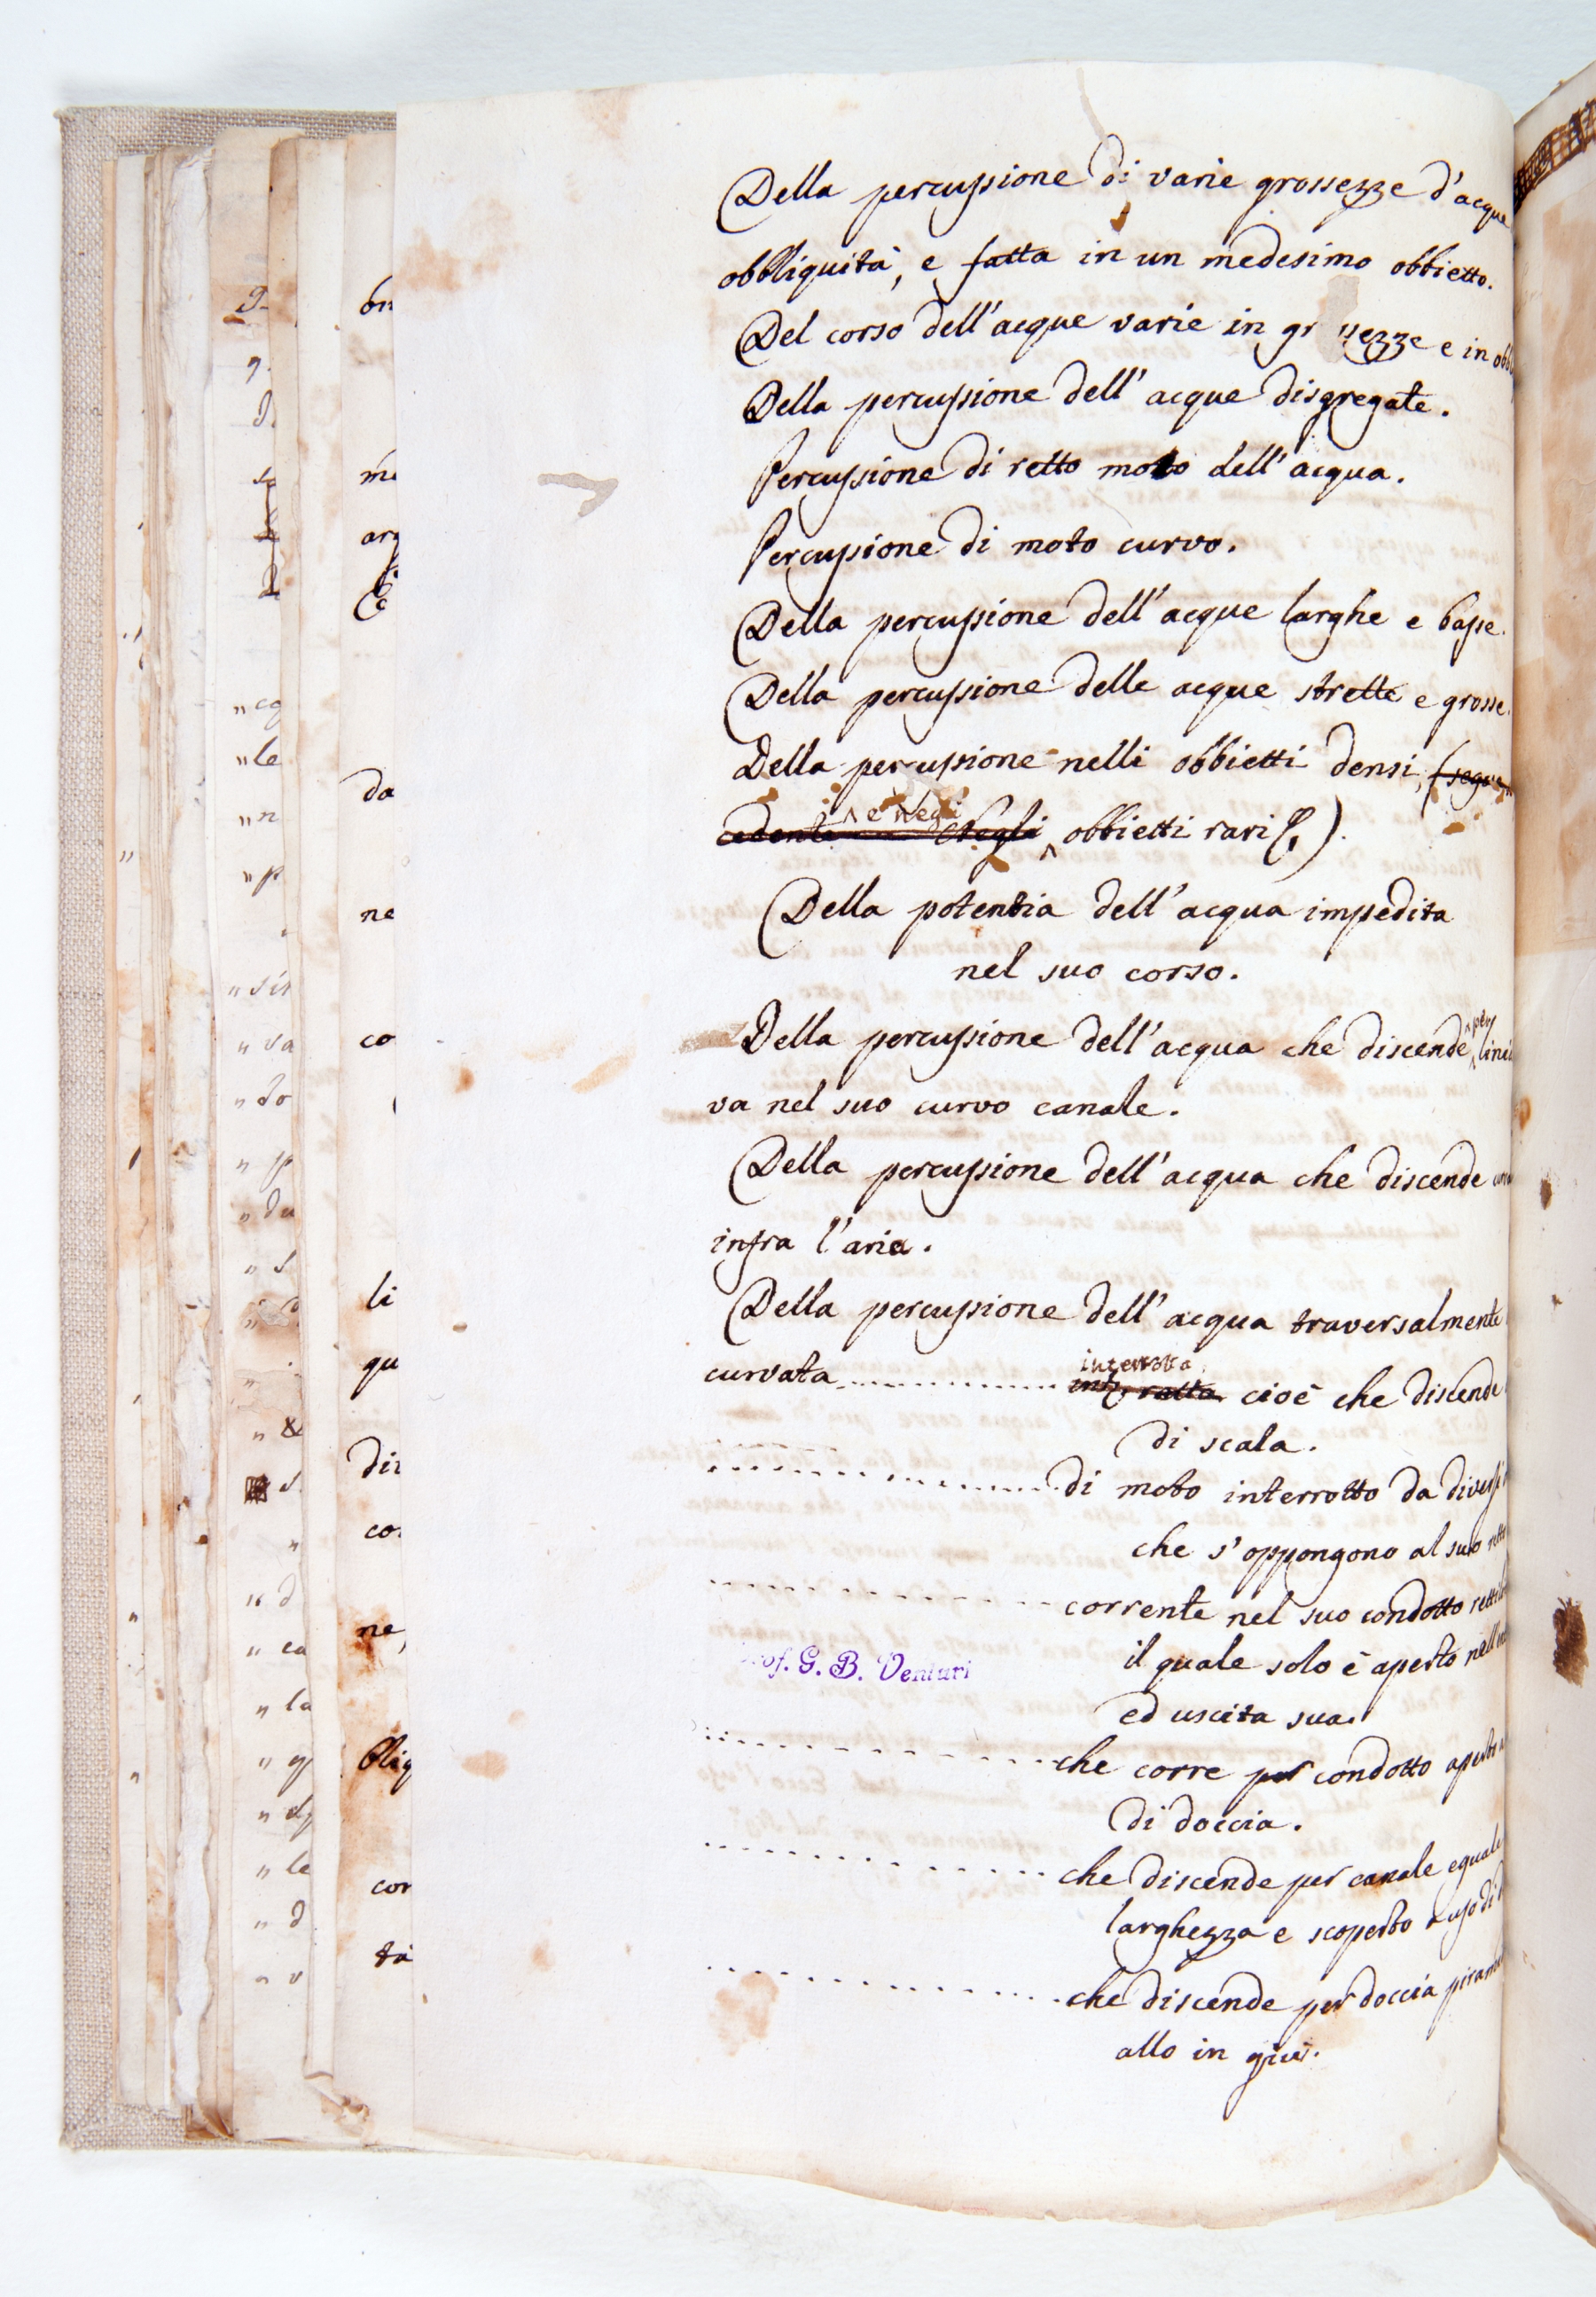 Della percussione di varie grossezze d'acque
obbliquità, e fatta in un medesimo obbietto.
Del corso dell'acque varie in gr ssezze e in obb
Della percussione dell' acque disgregate.
Percussione di retto moto dell' acqua.
Percussione di moto curvo.
Della percussione dell' acque larghe e basse.
Della percussione delle acque strette e grosse.
Della percussione nelli obbietti densi, (segue
e negli
cedente Negli obbietti rari ).
Della potentia dell' acqua impedita
nel suo corso.
per
Della percussione dell' acqua che discende
va nel suo curvo canale.
Della percussione dell' acqua che discende
infra l'aria.
Della percussione dell' acqua traversalmente
interotta
curvata cioè che discende
di scala.
di moto interrotto da diversi
che s'oppongono al suo retto
corrente nel suo condotto
il quale solo è aperto
ed uscita sua.
Prof. G. B. Venturi
che corre per condotto aperto
di doccia.
che discende per canale eguale
larghezza e scoperto a uso di
che discende per doccia
allo in giù.